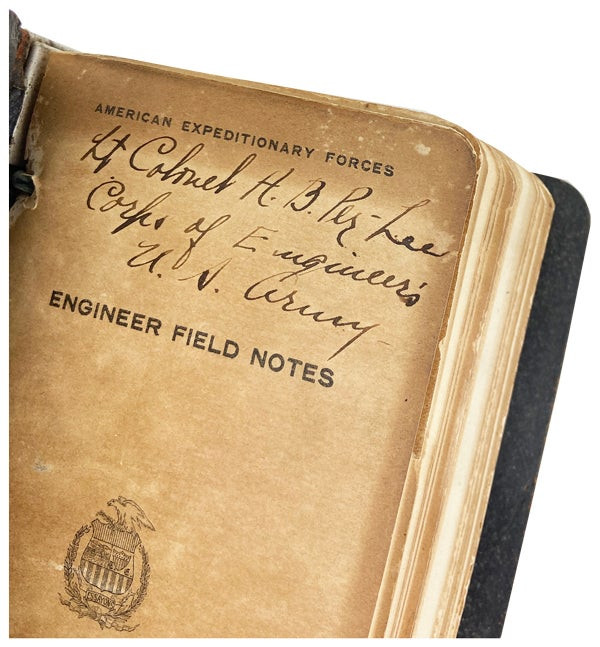 AMERICAN EXPEDITIONARY FORCES
Lt Colonel H. B. Pez-Lee
Corps of Engineers
U. S. Army
ENGINEER FIELD NOTES
ESSAYONS